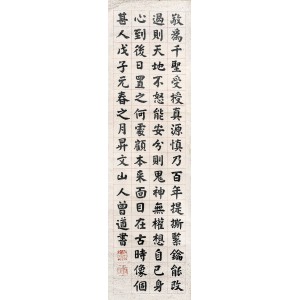 敬為千聖受授真源慎乃百年提撕緊鑰能改
過則天地不怒能安分則鬼神無權想自己身
心到後日置之何處顧本來面目在古時像個
甚人戊子元春之月昇文山人曾道書